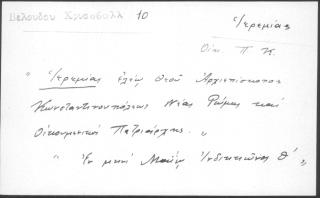 Βελούδου Χρυσόβουλλ 10
Ἱερεμίας
Οἰκ. Π. Κ.
" Ἱερεμίας ἐλέῳ Θεοῦ Ἀρχιεπίσκοπος
Κωνσταντινουπόλεως Νέας Ῥώμης καὶ
Οἰκουμενικὸς Πατριάρχης. "
" Ἐν μηνὶ Μαΐῳ Ἰνδικτιῶνος θ' "